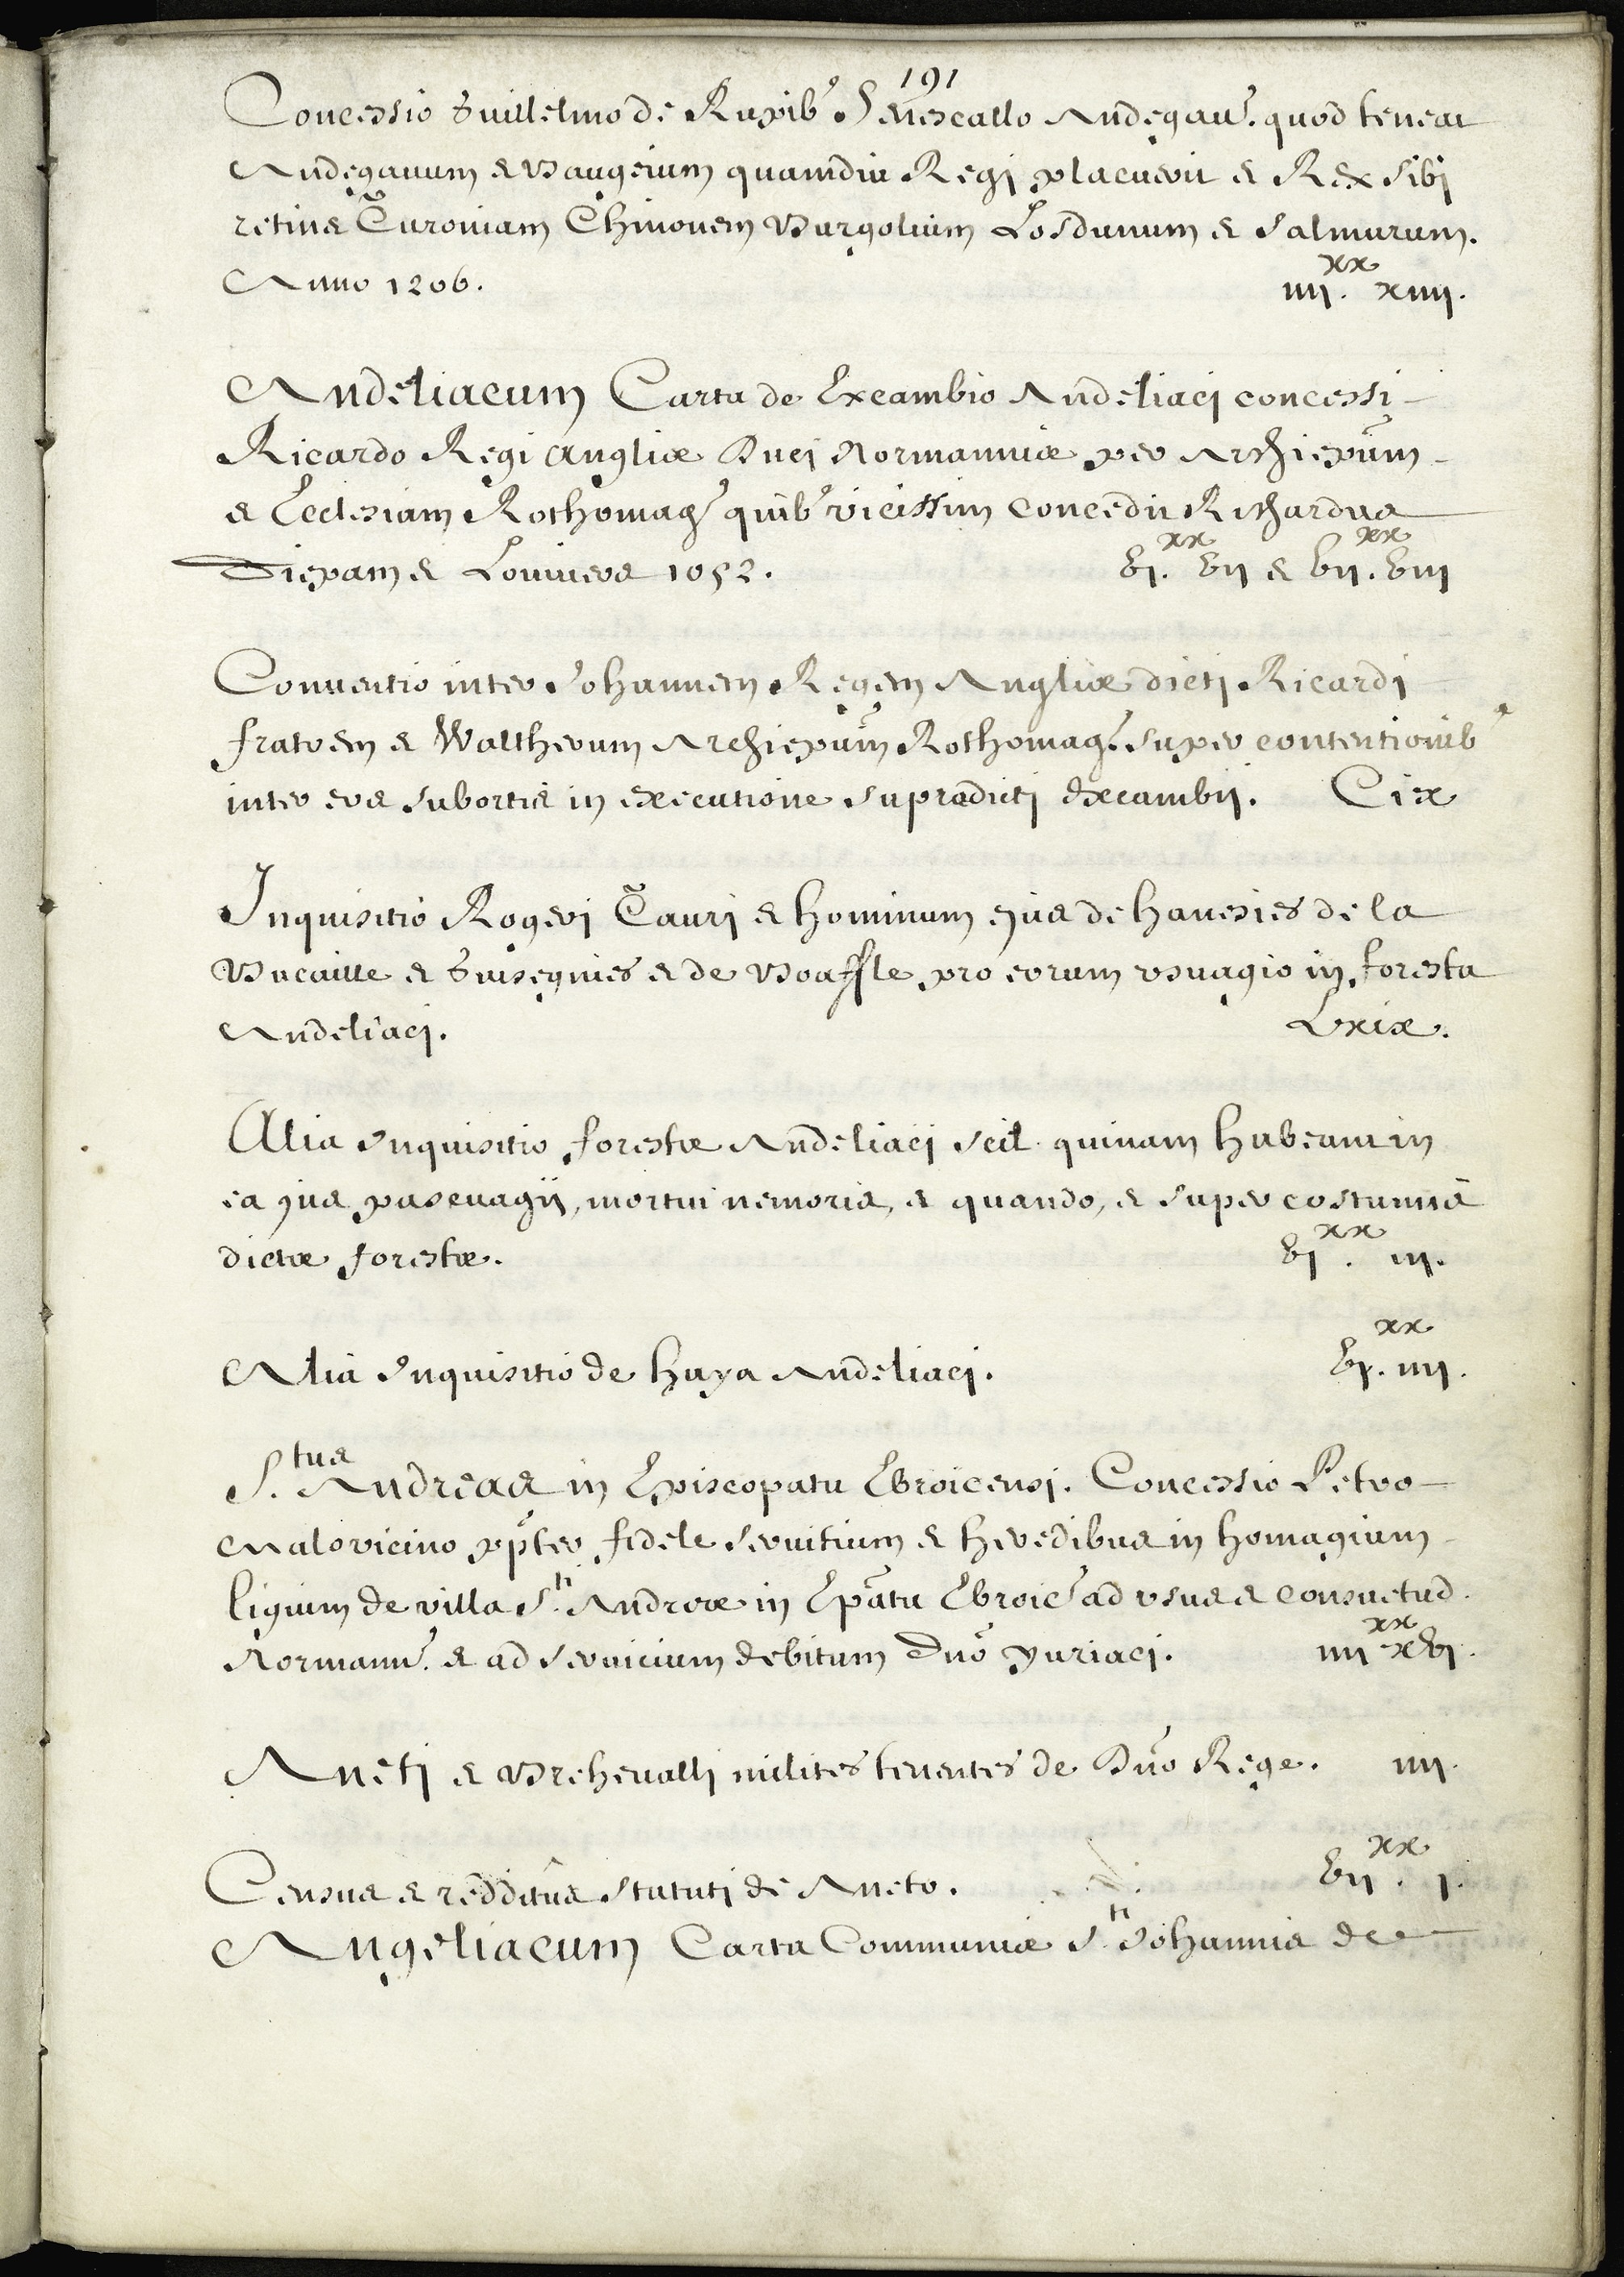 191
Concessio Guillelmo de Rupib' Senescallo Andegav'. quod teneat
Andegavum & Baugeium quamdiu Regi placuerit & Rex sibi
retinet Turoniam Chinonem Burgolium Losdunum & Salmurum.
Anno 1206. iiij.xx xiiij.
Andeliacum Carta de Excambio Andeliaci concessi
Ricardo Regi Angliæ Duci Normanniæ per Archiepũm
& Ecclesiam Rothomag' quib' vicissim concedit Richardus
Diepam & Louviers 1092. vj.xx vij & vij.xx viij
Conventio inter Johannem Regem Angliæ dicti Ricardi
fratrem & Waltherum Archiepũm Rothomag'. super contentionib'
inter eos subortis in executione supradicti excambij. Cix
Inquisitio Rogeri Tauri & hominum ejus de havesies de la
Bucaille & Guisegnies & de Boaffle pro eorum usuagio in foresta
Andeliaci. Lxix.
Alia Inquisitio forestæ Andeliaci scil. quinam habeant in
ea jus pascuagij, mortui nemoris, & quando, & super costumis
dictæ forestæ. vj.xx iij.
Alia Inquisitio de haya Andeliaci. vj.xx iiij.
S.tus Andreas in Episcopatu Ebroicensi. Concessio Petro
Malovicino ppter fidele servitium & heredibus in homagium
ligium de villa S.ti Andreæ in Epãtu Ebroic' ad usus & consuetud.
Normann'. & ad servicium debitum Dño Yuriaci. iiij xx xvj.
Aneti & Brehevalli milites tenentes de Dño Rege. iiij.
Census & redditus statuti de Aneto. vij.xx j.
Angeliacum Carta Communiæ S.ti Johannis de